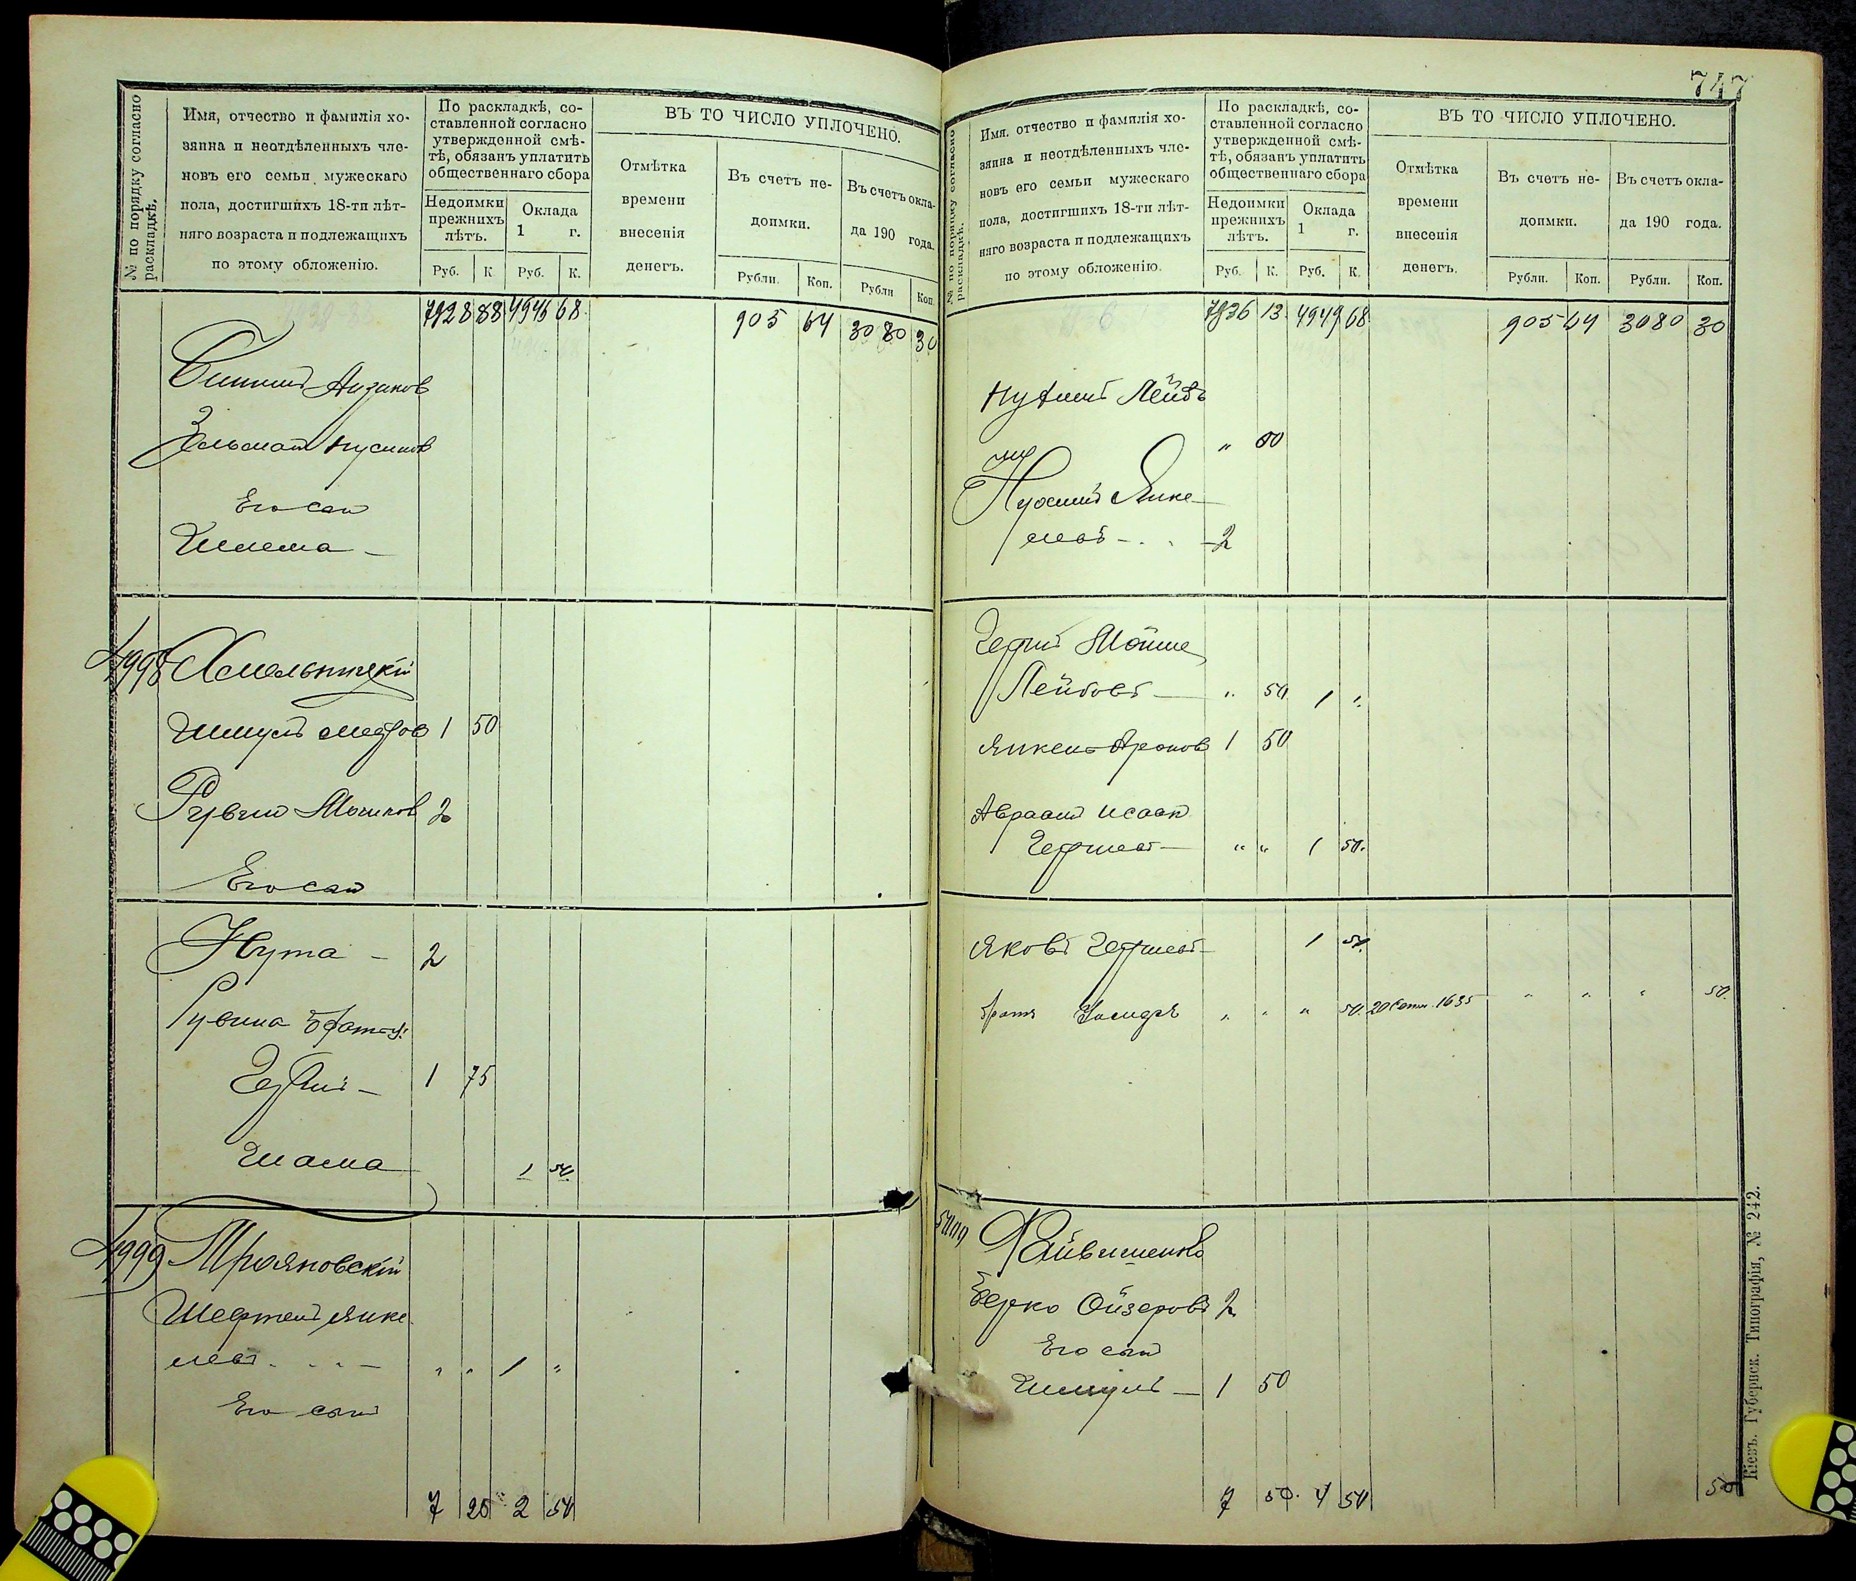 № по порядку согласно раскладкѣ.
Имя, отчество и фамилія хо-
зяина и неотдѣленныхъ чле-
новъ его семьи мужескаго
пола, достигшихъ 18-ти лѣт-
няго возраста и подлежащихъ
по этому обложенію.
По раскладкѣ, со-
ставленной согласно
утвержденной смѣ-
тѣ, обязанъ уплатить
общественнаго сбора
Недоимки
прежнихъ
лѣтъ.
Оклада
1 г.
Руб. К. Руб. К.
ВЪ ТО ЧИСЛО УПЛОЧЕНО.
Отмѣтка
времени
внесенія
денегъ.
Въ счетъ не-
доимки.
Въ счетъ окла-
да 190 года.
Рубли. Коп. Рубли Коп.
7928 88 4946 68 905 64 3080 30
Зельман Нусинов
Его сын
Шлема –
4998 Хмельницкій
Шмуль 1 50
Рувин Мошков 2
Его сын
Нута – 2
Рувина братья:
Герш – 1 75
Шама 1 50
4999 Трояновскій
Шефтель Янке
левъ – " " 1 "
Его сын
7 25 2 50
747
№ по порядку согласно раскладкѣ.
Имя, отчество и фамилія хо-
зяина и неотдѣленныхъ чле-
новъ его семьи мужескаго
пола, достигшихъ 18-ти лѣт-
няго возраста и подлежащихъ
по этому обложенію.
По раскладкѣ, со-
ставленной согласно
утвержденной смѣ-
тѣ, обязанъ уплатить
общественнаго сбора
Недоимки
прежнихъ
лѣтъ.
Оклада
1 г.
Руб. К. Руб. К.
ВЪ ТО ЧИСЛО УПЛОЧЕНО.
Отмѣтка
времени
внесенія
денегъ.
Въ счетъ не-
доимки.
Въ счетъ окла-
да 190 года.
Рубли. Коп. Рубли. Коп.
7936 13 4949 68 905 64 3080 30
Лейб
" 50
Янке
левъ – 2
Герш Мойше
Лейбовъ – " 50 1 "
Янкель Аронов 1 50
Авраам Исаак
Гершев – " " 1 50
Яковъ Гершев – 1 50
братъ " " " 50 20 1635 " " " 50
5000 Файвишенко
Берко Ойзеровъ 2
Его сын
Шмуль – 1 50
7 50 4 50 50
Кіевъ. Губернск. Типографія, № 242.